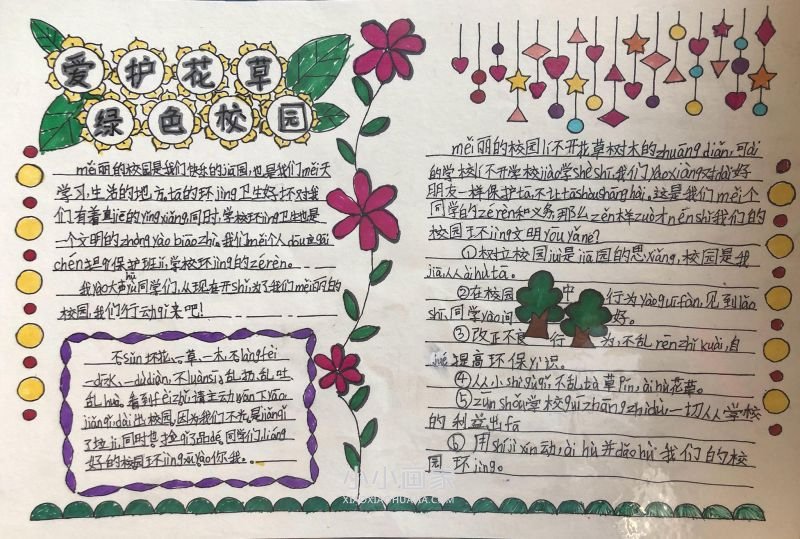 爱护花草
绿色校园
měi丽的校园是我们快乐的jiā园,也是我们měi天
学习,生活的地方,tā的环jìng卫生好坏对我
们有着直jiē的yǐng xiǎng,同时,学校环jìng卫生也是
一个文明的zhòng yào biāo zhì。我们měi个人dōu yīng gāi
chéng担
保护
学校环jìng的zé rèn。
我yào大声
同学们,从现在开shǐ,为了我们měi丽的
校园,我们行动qǐ来吧!
不sǔn坏花一草一木,不làng fèi
不luàn
乱扔,乱吐,
乱huà,看到fèi zhǐ请主动wān下yāo
jiǎn qǐ dài出校园,因为我们不光是jiǎn qǐ
了垃jī,同时也
了品dé,同学们liáng
好的校园环jìng xū yào你我。
měi丽的校园lí不开花草树木的zhuāng diǎn,可ài
的学校lí不开学校jiào学shè shī,我们yào xiàng对dài好
朋友一样保护tā,不让tā shòu shāng hài,这是我们měi个
同学的zé rèn和义务,那么zěn样zuò才néng shǐ我们的
校园环jìng文明yōu yǎ ne?
①树立校园jiù是jiā园的思xiǎng,校园是我
jiā,人人ài hù tā。
②在校园中行为yào guī fàn,见到lǎo
shī,同学yào问好。
③改正不良行为,不乱rēng zhǐ kuài,自
jué提高环保yì识。
④从小shì
不乱tà草píng,ài hù花草。
⑤zūn shǒu学校guī zhāng zhì dù,一切从学校
的利益出fā
⑥用shí jì xíng动,ài hù并bǎo hù我们的校
园环jìng。
小小画家
XIAOXIAOHUAJIA.COM